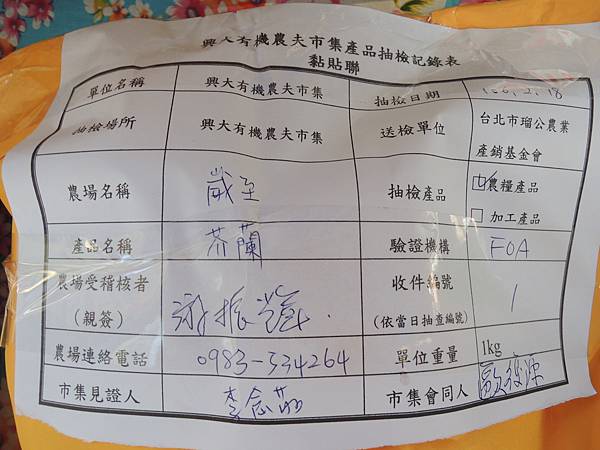 興大有機農夫市集產品抽檢記錄表
黏貼聯
單位名稱 興大有機農夫市集 抽檢日期 106.2.18
抽檢場所 興大有機農夫市集 送檢單位 台北市瑠公農業
產銷基金會
農場名稱 歲至 抽檢產品 ☑農糧產品
□ 加工產品
產品名稱 芥蘭 驗證機構 FOA
農場受稽核者
(親簽)
收件編號
(依當日抽查編號)
1
農場連絡電話 0983-534264 單位重量 1kg
市集見證人 李念 市集會同人